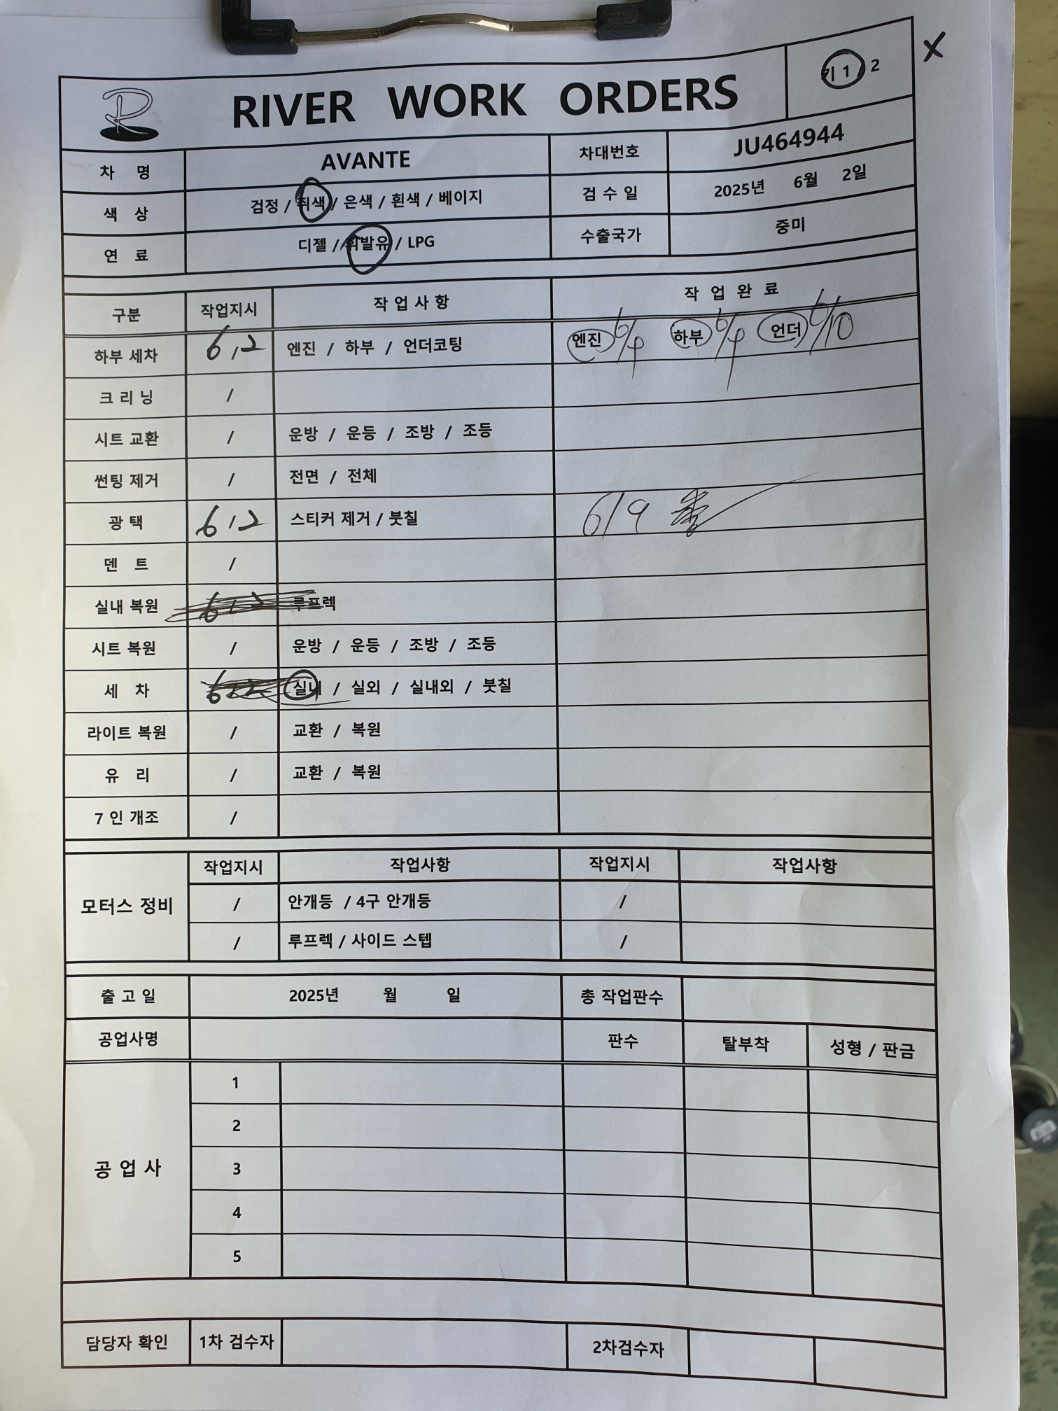 키 1 / 2 X
RIVER WORK ORDERS
차 명 AVANTE 차대번호 JU464944
색 상 검정 / 쥐색 / 은색 / 흰색 / 베이지 검 수 일 2025년 6월 2일
연 료 디젤 / 휘발유 / LPG 수출국가 중미
구분 작업지시 작 업 사 항 작 업 완 료
하부 세차 6 / 2 엔진 / 하부 / 언더코팅 엔진 6/9 하부 6/9 언더 6/10
크 리 닝 /
시트 교환 / 운방 / 운등 / 조방 / 조등
썬팅 제거 / 전면 / 전체
광 택 6 / 2 스티커 제거 / 붓칠 6/9
덴 트 /
실내 복원 6 / 2 루프렉
시트 복원 / 운방 / 운등 / 조방 / 조등
세 차 6 / 2 실내 / 실외 / 실내외 / 붓칠
라이트 복원 / 교환 / 복원
유 리 / 교환 / 복원
7 인 개조 /
모터스 정비 작업지시 작업사항 작업지시 작업사항
/ 안개등 / 4구 안개등 /
/ 루프렉 / 사이드 스텝 /
출 고 일 2025년 월 일 총 작업판수
공업사명 판수 탈부착 성형 / 판금
공 업 사
1
2
3
4
5
담당자 확인 1차 검수자 2차검수자